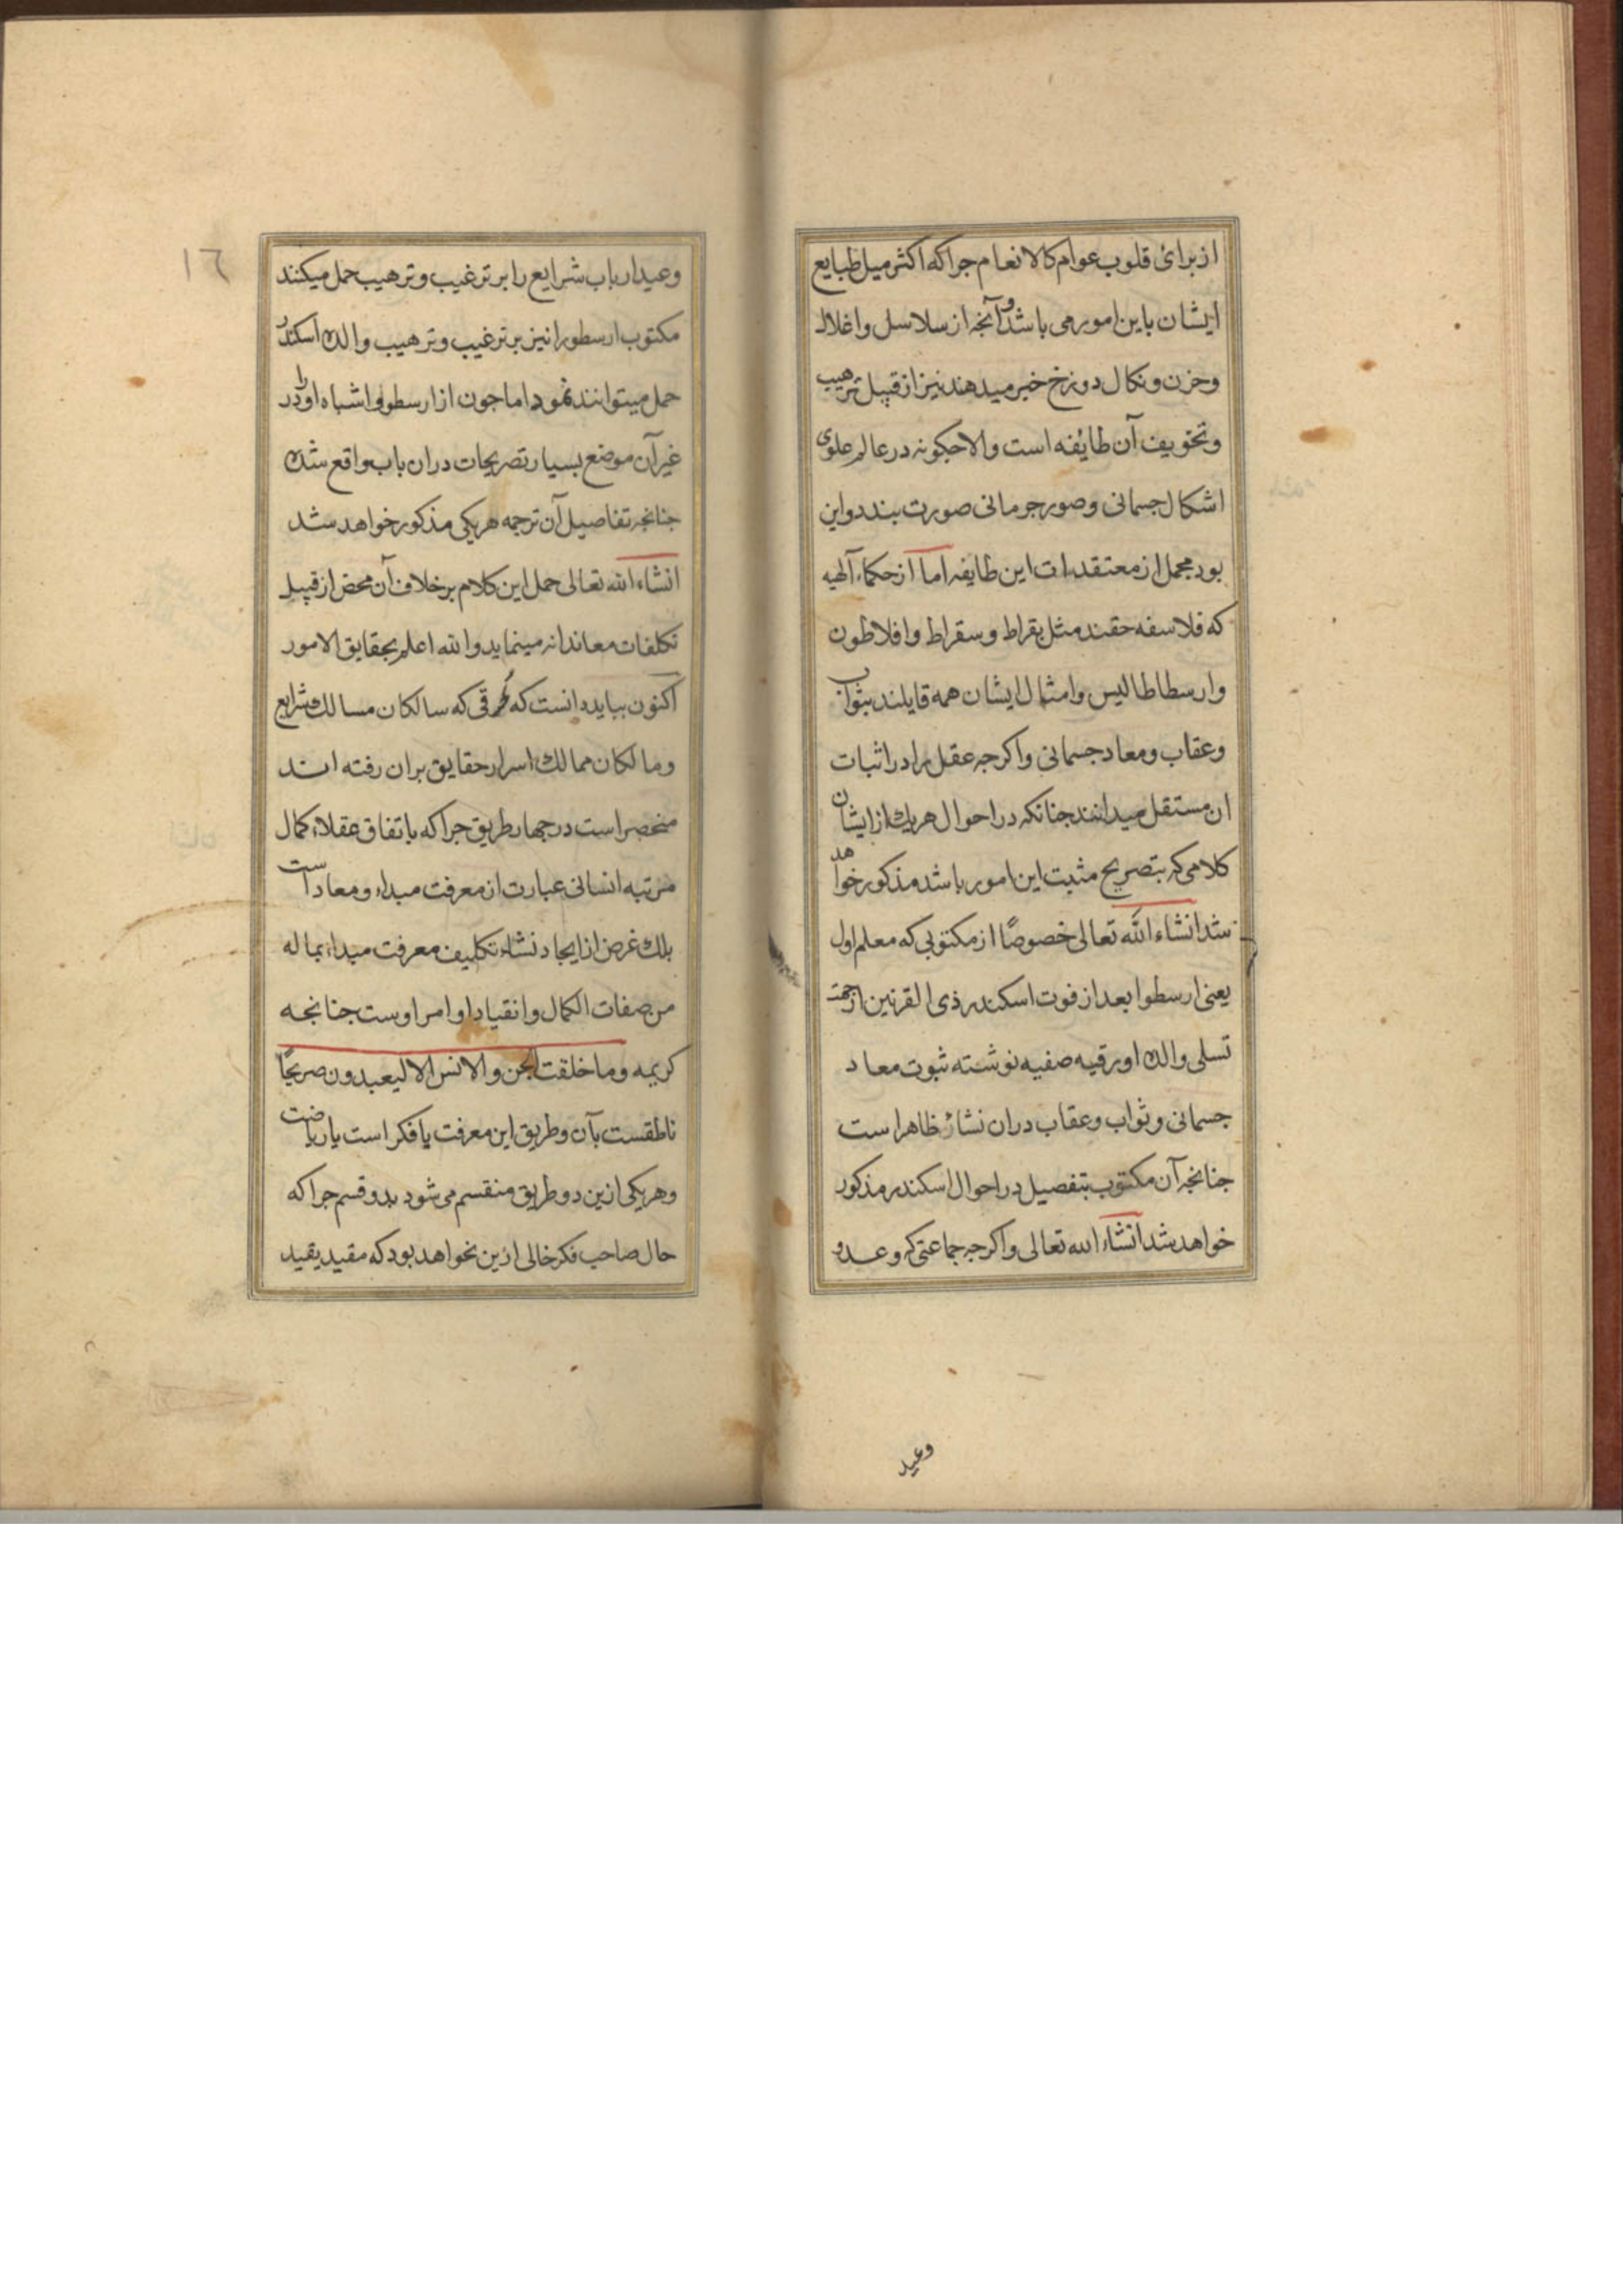 از برائ قلوب عوام کالانعام جراکه اکثر میل طبایع
ایشان باین امور می باشد و آنجه از سلاسل و اغلال
و حزن و نکال دوزخ خبر میدهند نیز از قبیل ترهیب
و تخویف آن طائفه است والا جکونه در عالم علوی
اشکال جسمانی و صور جرمانی صورت بندد و این
بود مجمل از معتقدات این طایفه اما از حکماء آلهیه
که فلاسفه حقند مثل بقراط و سقراط و افلاطون
و ارسطاطالیس و امثال ایشان همه قایلند بثواب
و عقاب و معاد جسمانی و اکرجه عقل را در اثبات
ان مستقل میدانند جنانکه در احوال هریک از ایشان
کلامی که بتصریح مثبت این امور باشد مذکور خواهد
شد انشاء الله تعالی خصوصًا از مکتوبی که معلم اول
یعنی ارسطو ا بعد از فوت اسکندر ذی القرنین از جهت
تسلی والده او رقیه صفیه نوشته ثبوت معاد
جسمانی و ثواب و عقاب دران نشاۀ ظاهر است
جنانجه آن مکتوب بتفصیل در احوال اسکندر مذکور
خواهد شد انشاء الله تعالی و اکرجه جماعتی که وعد و
وعید
١٦
وعید ارباب شرایع را بر ترغیب و ترهیب حمل میکنند
مکتوب ارسطو را نیز بر ترغیب و ترهیب والده اسکندر
حمل میتوانند نمود اما جون از ارسطو و اشباه او را در
غیر آن موضع بسیار تصریحات دران باب واقع شده
جنانجه تفاصیل آن ترجمه هریکی مذکور خواهد شد
انشاء الله تعالی حمل این کلام بر خلاف آن محض از قبیل
تکلفات معاندانه مینماید و الله اعلم بحقایق الامور
اکنون بباید دانست که طرقی که سالکان مسالک شرایع
و مالکان ممالک اسرار حقایق بران رفته اند
منحصر است در جهار طریق جراکه باتفاق عقلاء کمال
مرتبه انسانی عبارت از معرفت مبداء و معاد است
بلک غرض از ایجاد نشاء تکلیف معرفت مبداء بما له
من صفات الکمال و انقیاد اوامر اوست جنانجه
کریمه وما خلقت الجن و الانس الا لیعبدون صریحًا
ناطقست بآن و طریق این معرفت یا فکر است یا ریاضت
و هریکی ازین دو طریق منقسم می شود بدو قسم جراکه
حال صاحب فکر خالی ازین نخواهد بود که مقید بقید